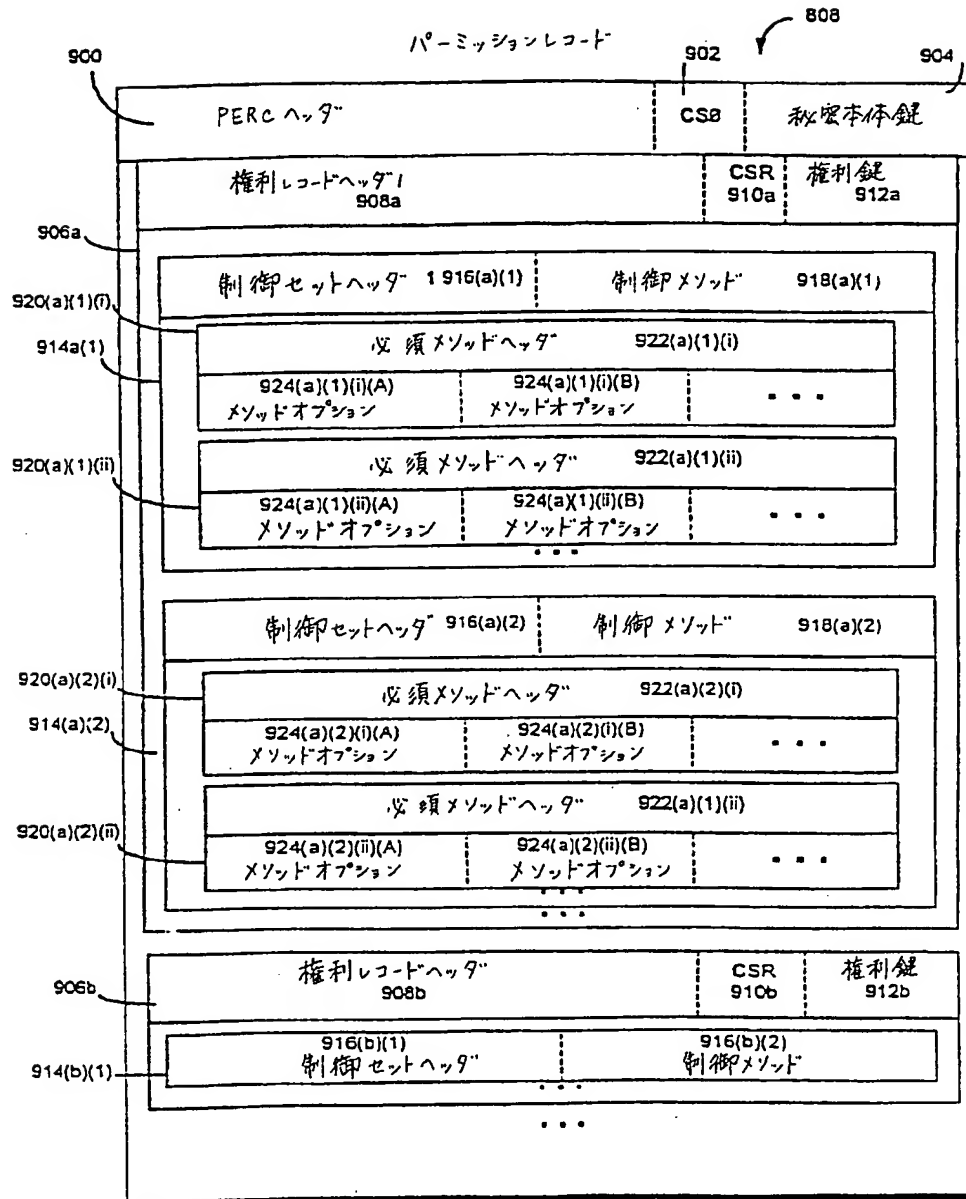 パーミッションレコード
808
900
902
904
PERC ヘッダ
CS0
秘密本体鍵
権利レコードヘッダ1
908a
CSR
910a
権利鍵
912a
906a
制御セットヘッダ 1 916(a)(1)
制御メソッド 918(a)(1)
920(a)(1)(i)
914a(1)
必須メソッドヘッダ 922(a)(1)(i)
924(a)(1)(i)(A)
メソッドオプション
924(a)(1)(i)(B)
メソッドオプション
• • •
920(a)(1)(ii)
必須メソッドヘッダ 922(a)(1)(ii)
924(a)(1)(ii)(A)
メソッドオプション
924(a)(1)(ii)(B)
メソッドオプション
• • •
• • •
制御セットヘッダ 916(a)(2)
制御メソッド 918(a)(2)
920(a)(2)(i)
914(a)(2)
必須メソッドヘッダ 922(a)(2)(i)
924(a)(2)(i)(A)
メソッドオプション
924(a)(2)(i)(B)
メソッドオプション
• • •
必須メソッドヘッダ 922(a)(1)(ii)
920(a)(2)(ii)
924(a)(2)(ii)(A)
メソッドオプション
924(a)(2)(ii)(B)
メソッドオプション
• • •
• • •
• • •
906b
権利レコードヘッダ
908b
CSR
910b
権利鍵
912b
914(b)(1)
916(b)(1)
制御セットヘッダ
916(b)(2)
制御メソッド
• • •
• • •